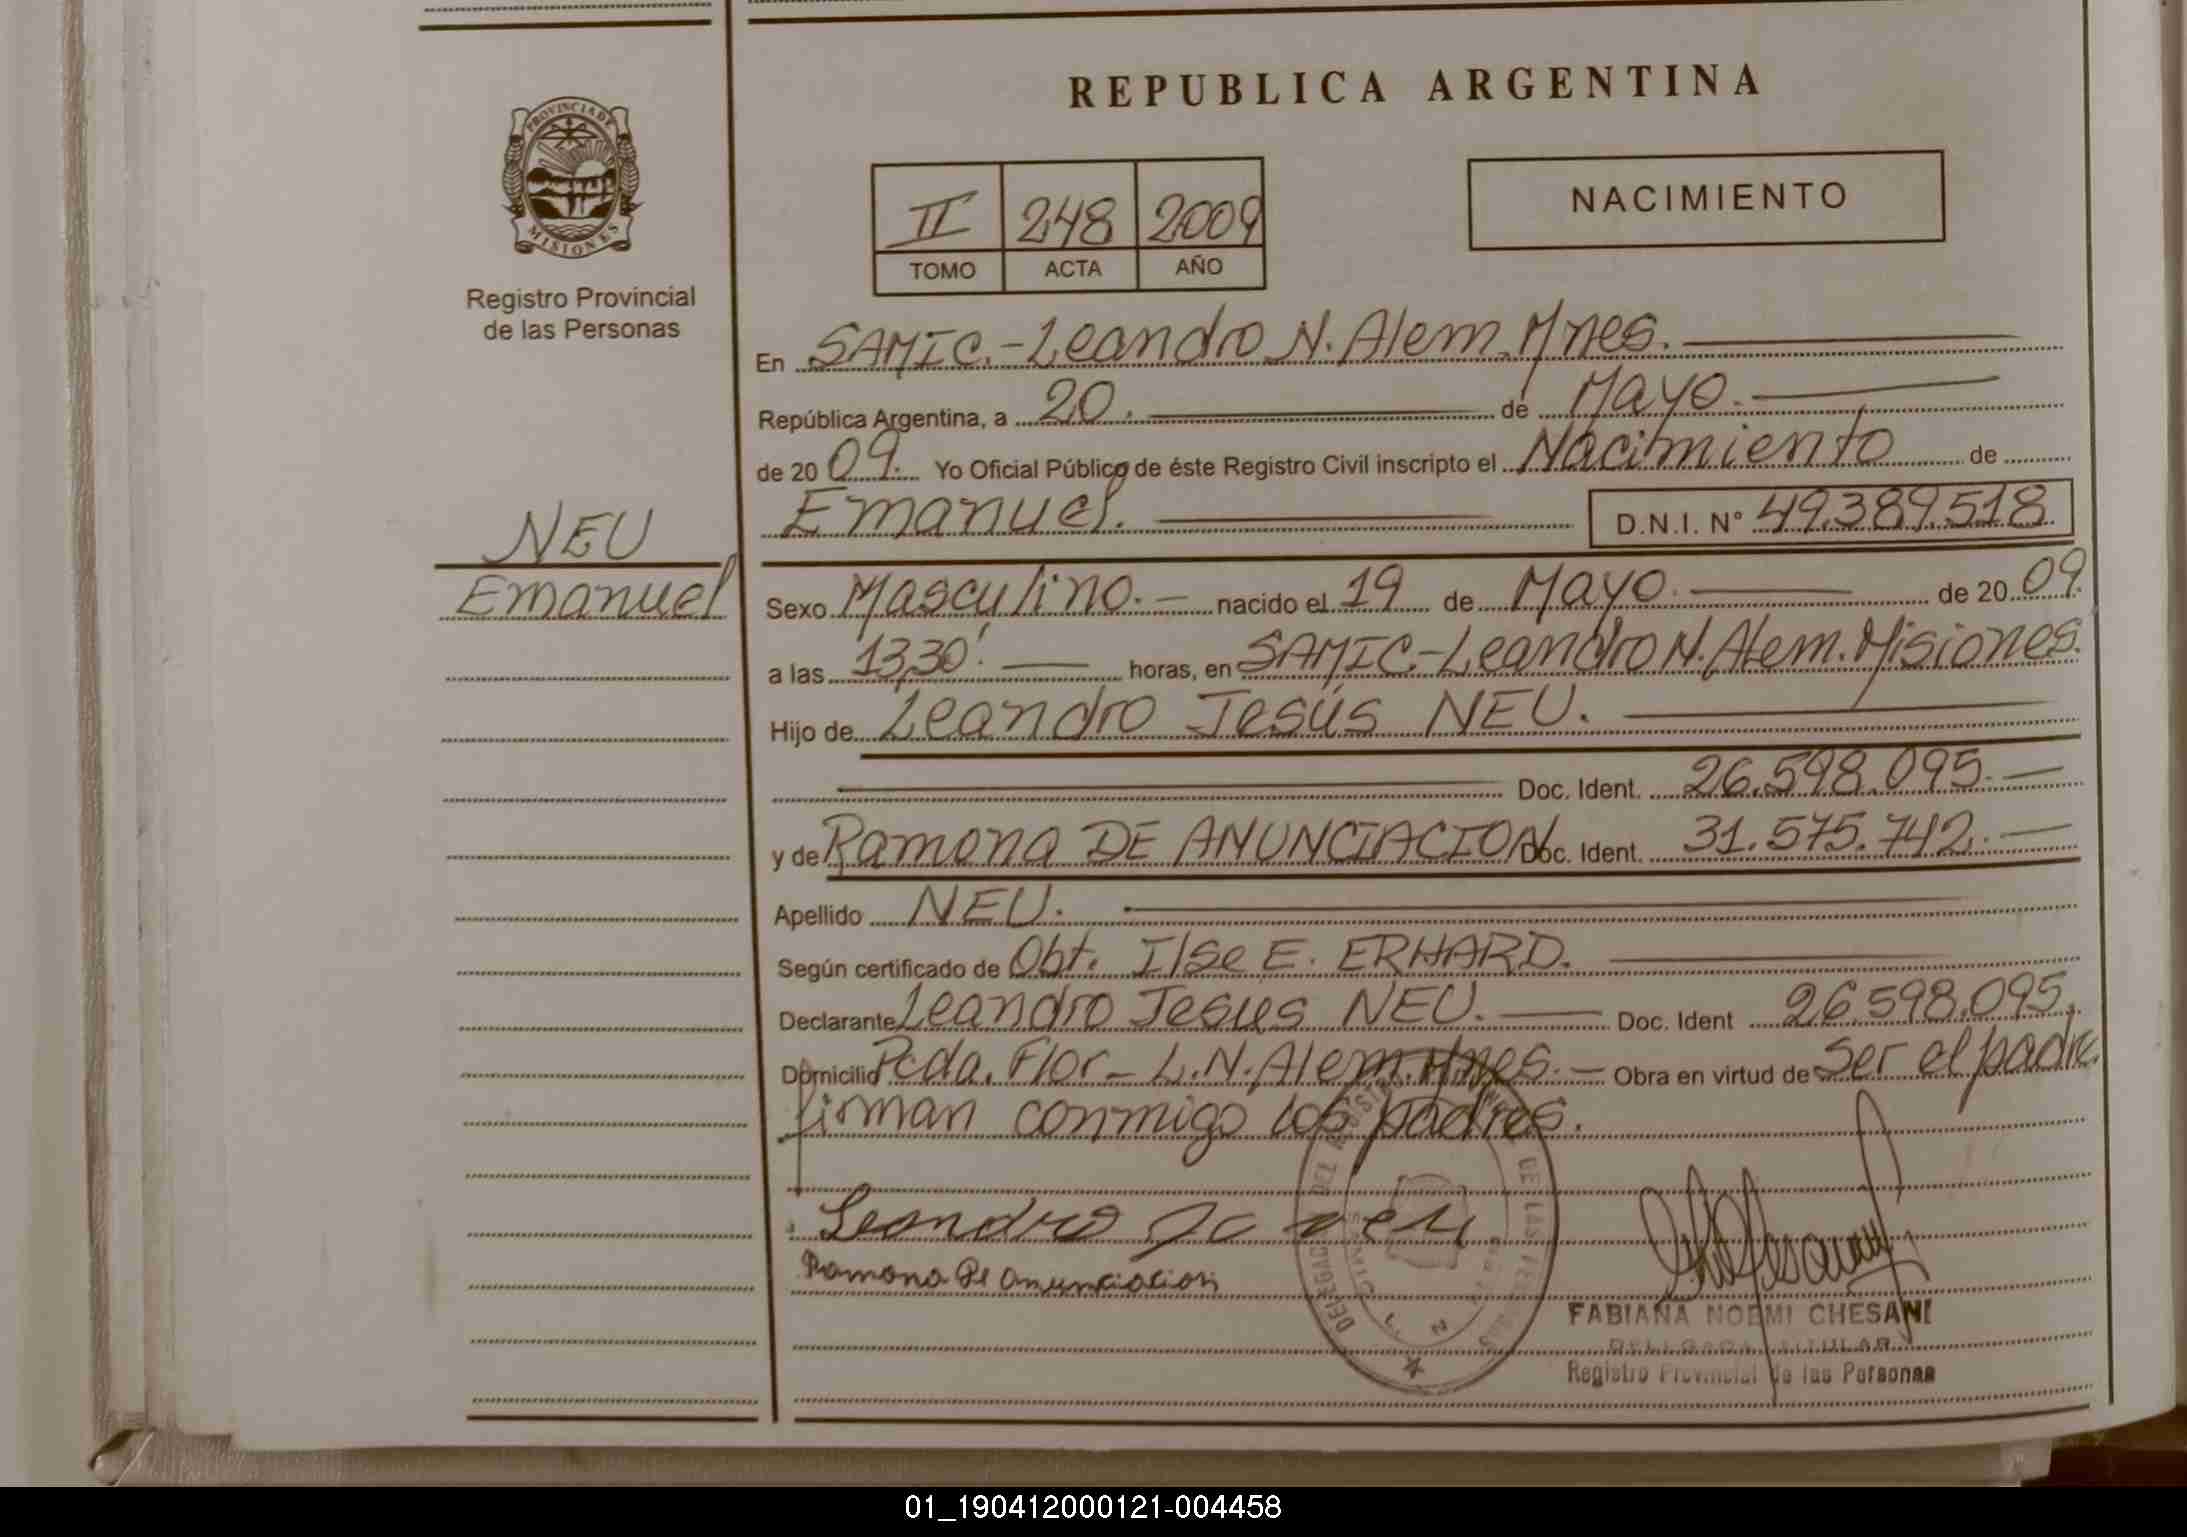 REPUBLICA ARGENTINA
PROVINCIA DE
MISIONES
Registro Provincial
de las Personas
II 248 2009
TOMO ACTA AÑO
NACIMIENTO
En SAMIC.-Leandro N. Alem. Mnes.
República Argentina, a 20. de Mayo.
de 20 09. Yo Oficial Público de éste Registro Civil inscripto el Nacimiento de
Emanuel. D.N.I. N° 49.389.518
NEU
Emanuel
Sexo Masculino. nacido el 19 de Mayo. de 20 09.
a las 13,30'. horas, en SAMIC.-Leandro N. Alem. Misiones.
Hijo de Leandro Jesús NEU.
Doc. Ident. 26.598.095.
y de Ramona DE ANUNCIACION Doc. Ident. 31.575.742.
Apellido NEU.
Según certificado de Obt. Ilse E. ERHARD.
Declarante Leandro Jesus NEU. Doc. Ident 26.598.095.
Domicilio Pcda. Flor - L.N. Alem. Mnes. Obra en virtud de Ser el padre.
firman conmigo los padres.
Leandro neu
Ramona De anunciacion
FABIANA NOEMI CHESANI
DELEGADA TITULAR
Registro Provincial de las Personas
01_190412000121-004458